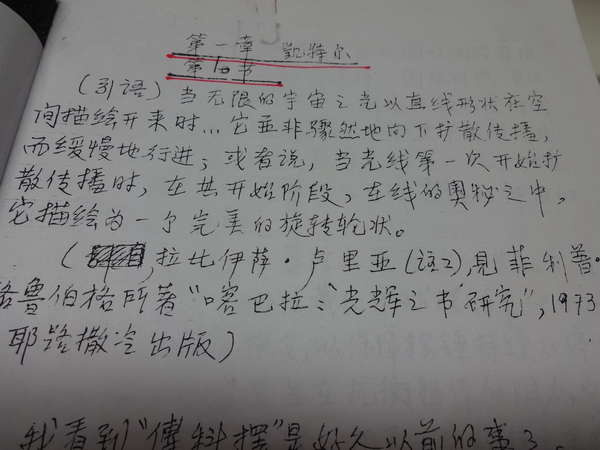 第一章 凯特尔
第1节
(引语) 当无限的宇宙之光以直线形状在空
间描绘开来时...它并非骤然地向下扩散传播,
而缓慢地行进;或者说,当光线第一次开始扩
散传播时,在其开始阶段,在线的奥秘之中,
它描绘为一个完美的旋转轮状。
(拉比伊萨·卢里亚(注2),见菲利普·
格鲁伯格所著"喀巴拉:'光辉之书'研究",1973
耶路撒冷出版)
我看到"傅科摆"是好久以前的事了。